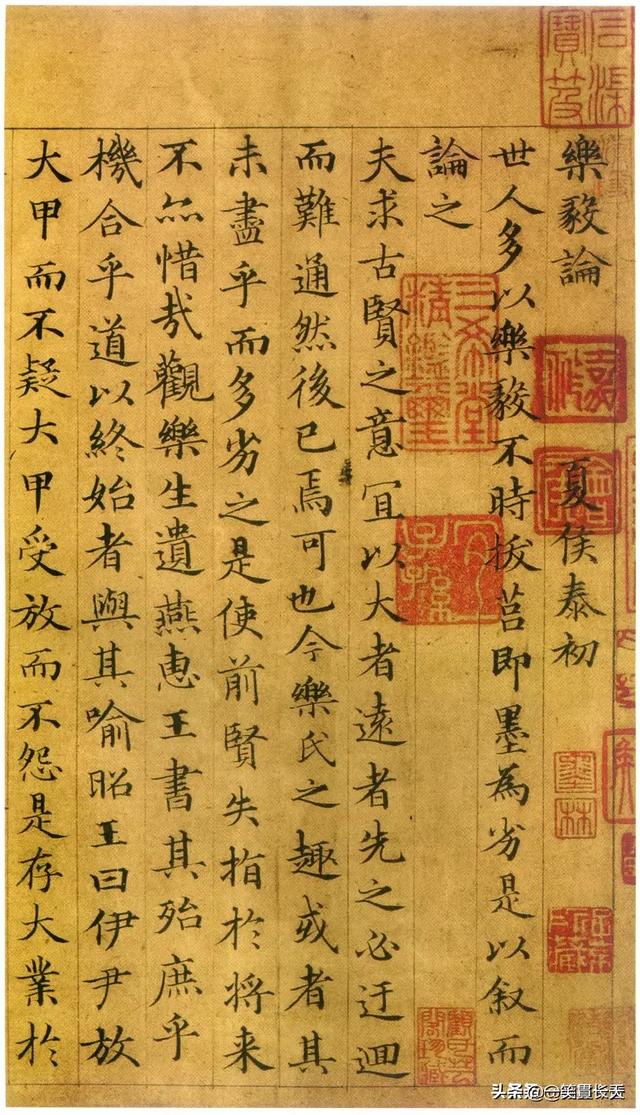 樂毅論 夏侯泰初
世人多以樂毅不時拔莒即墨為劣是以叙而
論之
夫求古賢之意宜以大者遠者先之必迂迴
而難通然後已焉可也今樂氏之趣或者其
未盡乎而多劣之是使前賢失指於將来
不亦惜哉觀樂生遺燕惠王書其殆庶乎
機合乎道以終始者與其喻昭王曰伊尹放
大甲而不疑大甲受放而不怨是存大業於
墨林
頭条@一笑置长天